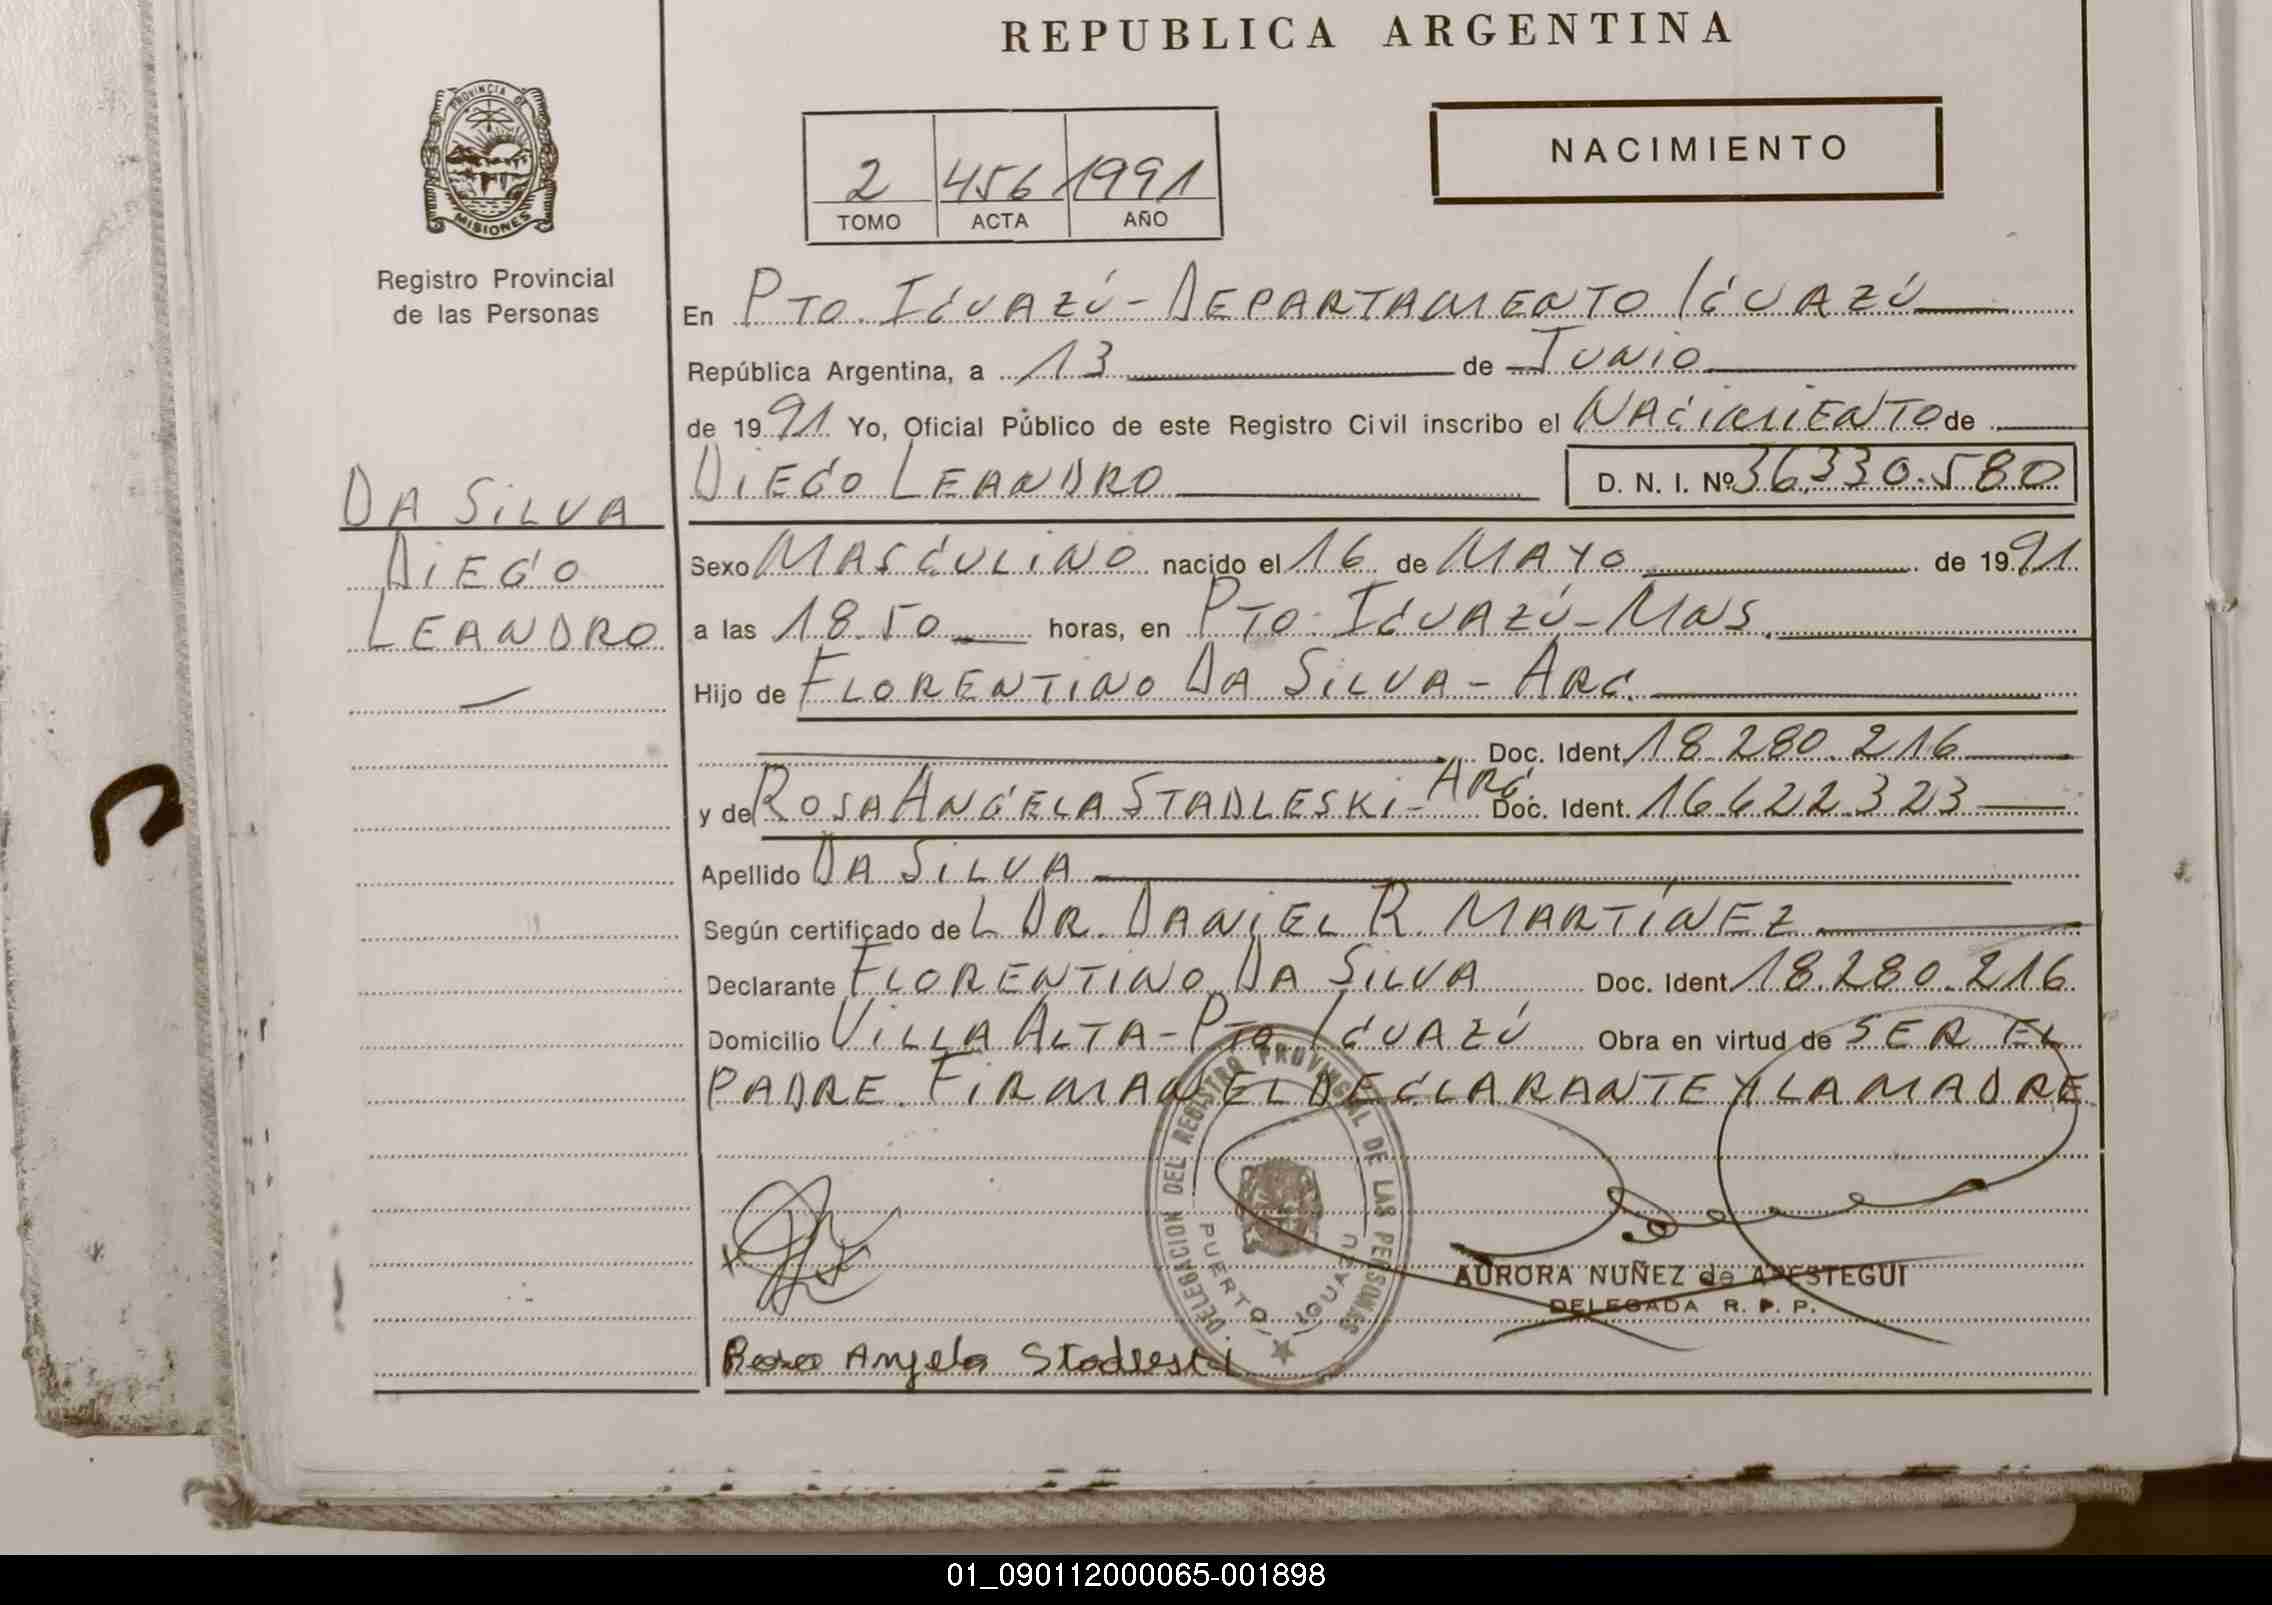 REPUBLICA ARGENTINA
PROVINCIA DE
MISIONES
Registro Provincial
de las Personas
NACIMIENTO
2 456 1991
TOMO ACTA AÑO
En PTO. IGUAZÚ - DEPARTAMENTO IGUAZÚ
República Argentina, a 13 de JUNIO
de 1991 Yo, Oficial Público de este Registro Civil inscribo el NACIMIENTO de
DIEGO LEANDRO D. N. I. Nº 36.330.580
DA SILVA
DIEGO
LEANDRO
Sexo MASCULINO nacido el 16 de MAYO de 1991
a las 18.50 horas, en PTO. IGUAZÚ - MNS.
Hijo de FLORENTINO DA SILVA - ARG.
Doc. Ident. 18.280.216
y de ROSA ANGELA STADLESKI - ARG. Doc. Ident. 16.622.323
Apellido DA SILVA
Según certificado de L DR. DANIEL R. MARTÍNEZ
Declarante FLORENTINO DA SILVA Doc. Ident. 18.280.216
Domicilio VILLA ALTA - PTO IGUAZÚ Obra en virtud de SER EL
PADRE. FIRMAN EL DECLARANTE Y LA MADRE
DELEGACION DEL REGISTRO PROVINCIAL DE LAS PERSONAS
PUERTO IGUAZU
AURORA NUÑEZ de APESTEGUI
DELEGADA R. P. P.
Rosa Angela Stadleski
01_090112000065-001898